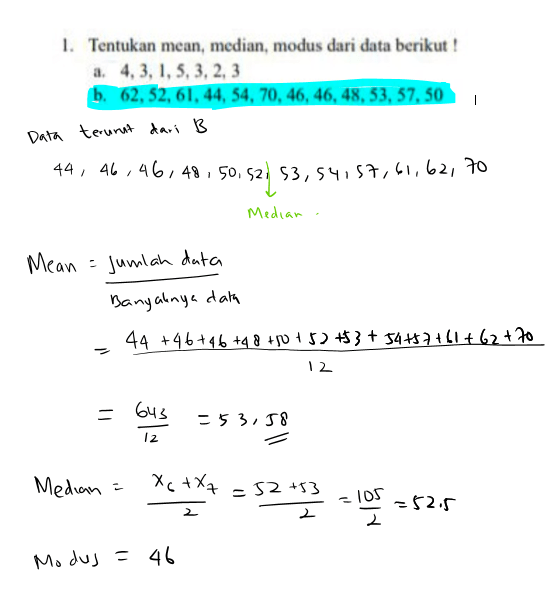 1. Tentukan mean, median, modus dari data berikut !
a. 4, 3, 1, 5, 3, 2, 3
b. 62, 52, 61, 44, 54, 70, 46, 46, 48, 53, 57, 50
Data terurut dari B
44, 46, 46, 48, 50, 52, 53, 54, 57, 61, 62, 70
Median.
Mean = Jumlah data
Banyaknya data
= 44 +46+46+48+50+52+53+54+57+61+62+70
12
= 643 = 53,58
12
Median = X6 + X7 = 52 +53 = 105 = 52.5
2 2 2
Modus = 46